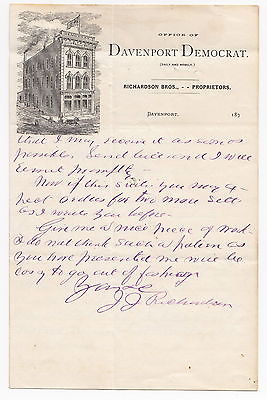 OFFICE OF
DAVENPORT DEMOCRAT.
(DAILY AND WEEKLY.)
RICHARDSON BROS., - - PROPRIETORS.
DAVENPORT, 187
that I may receive it as soon as
possible. Send bill and I will
remit promptly.
Most of this style you may ex-
pect orders for two more setts
as I wrote you before.
Give me a nice piece of work
I do not think such a pattern as
you have presented me will be
easy to go out of fashion
Yours
J J Richardson